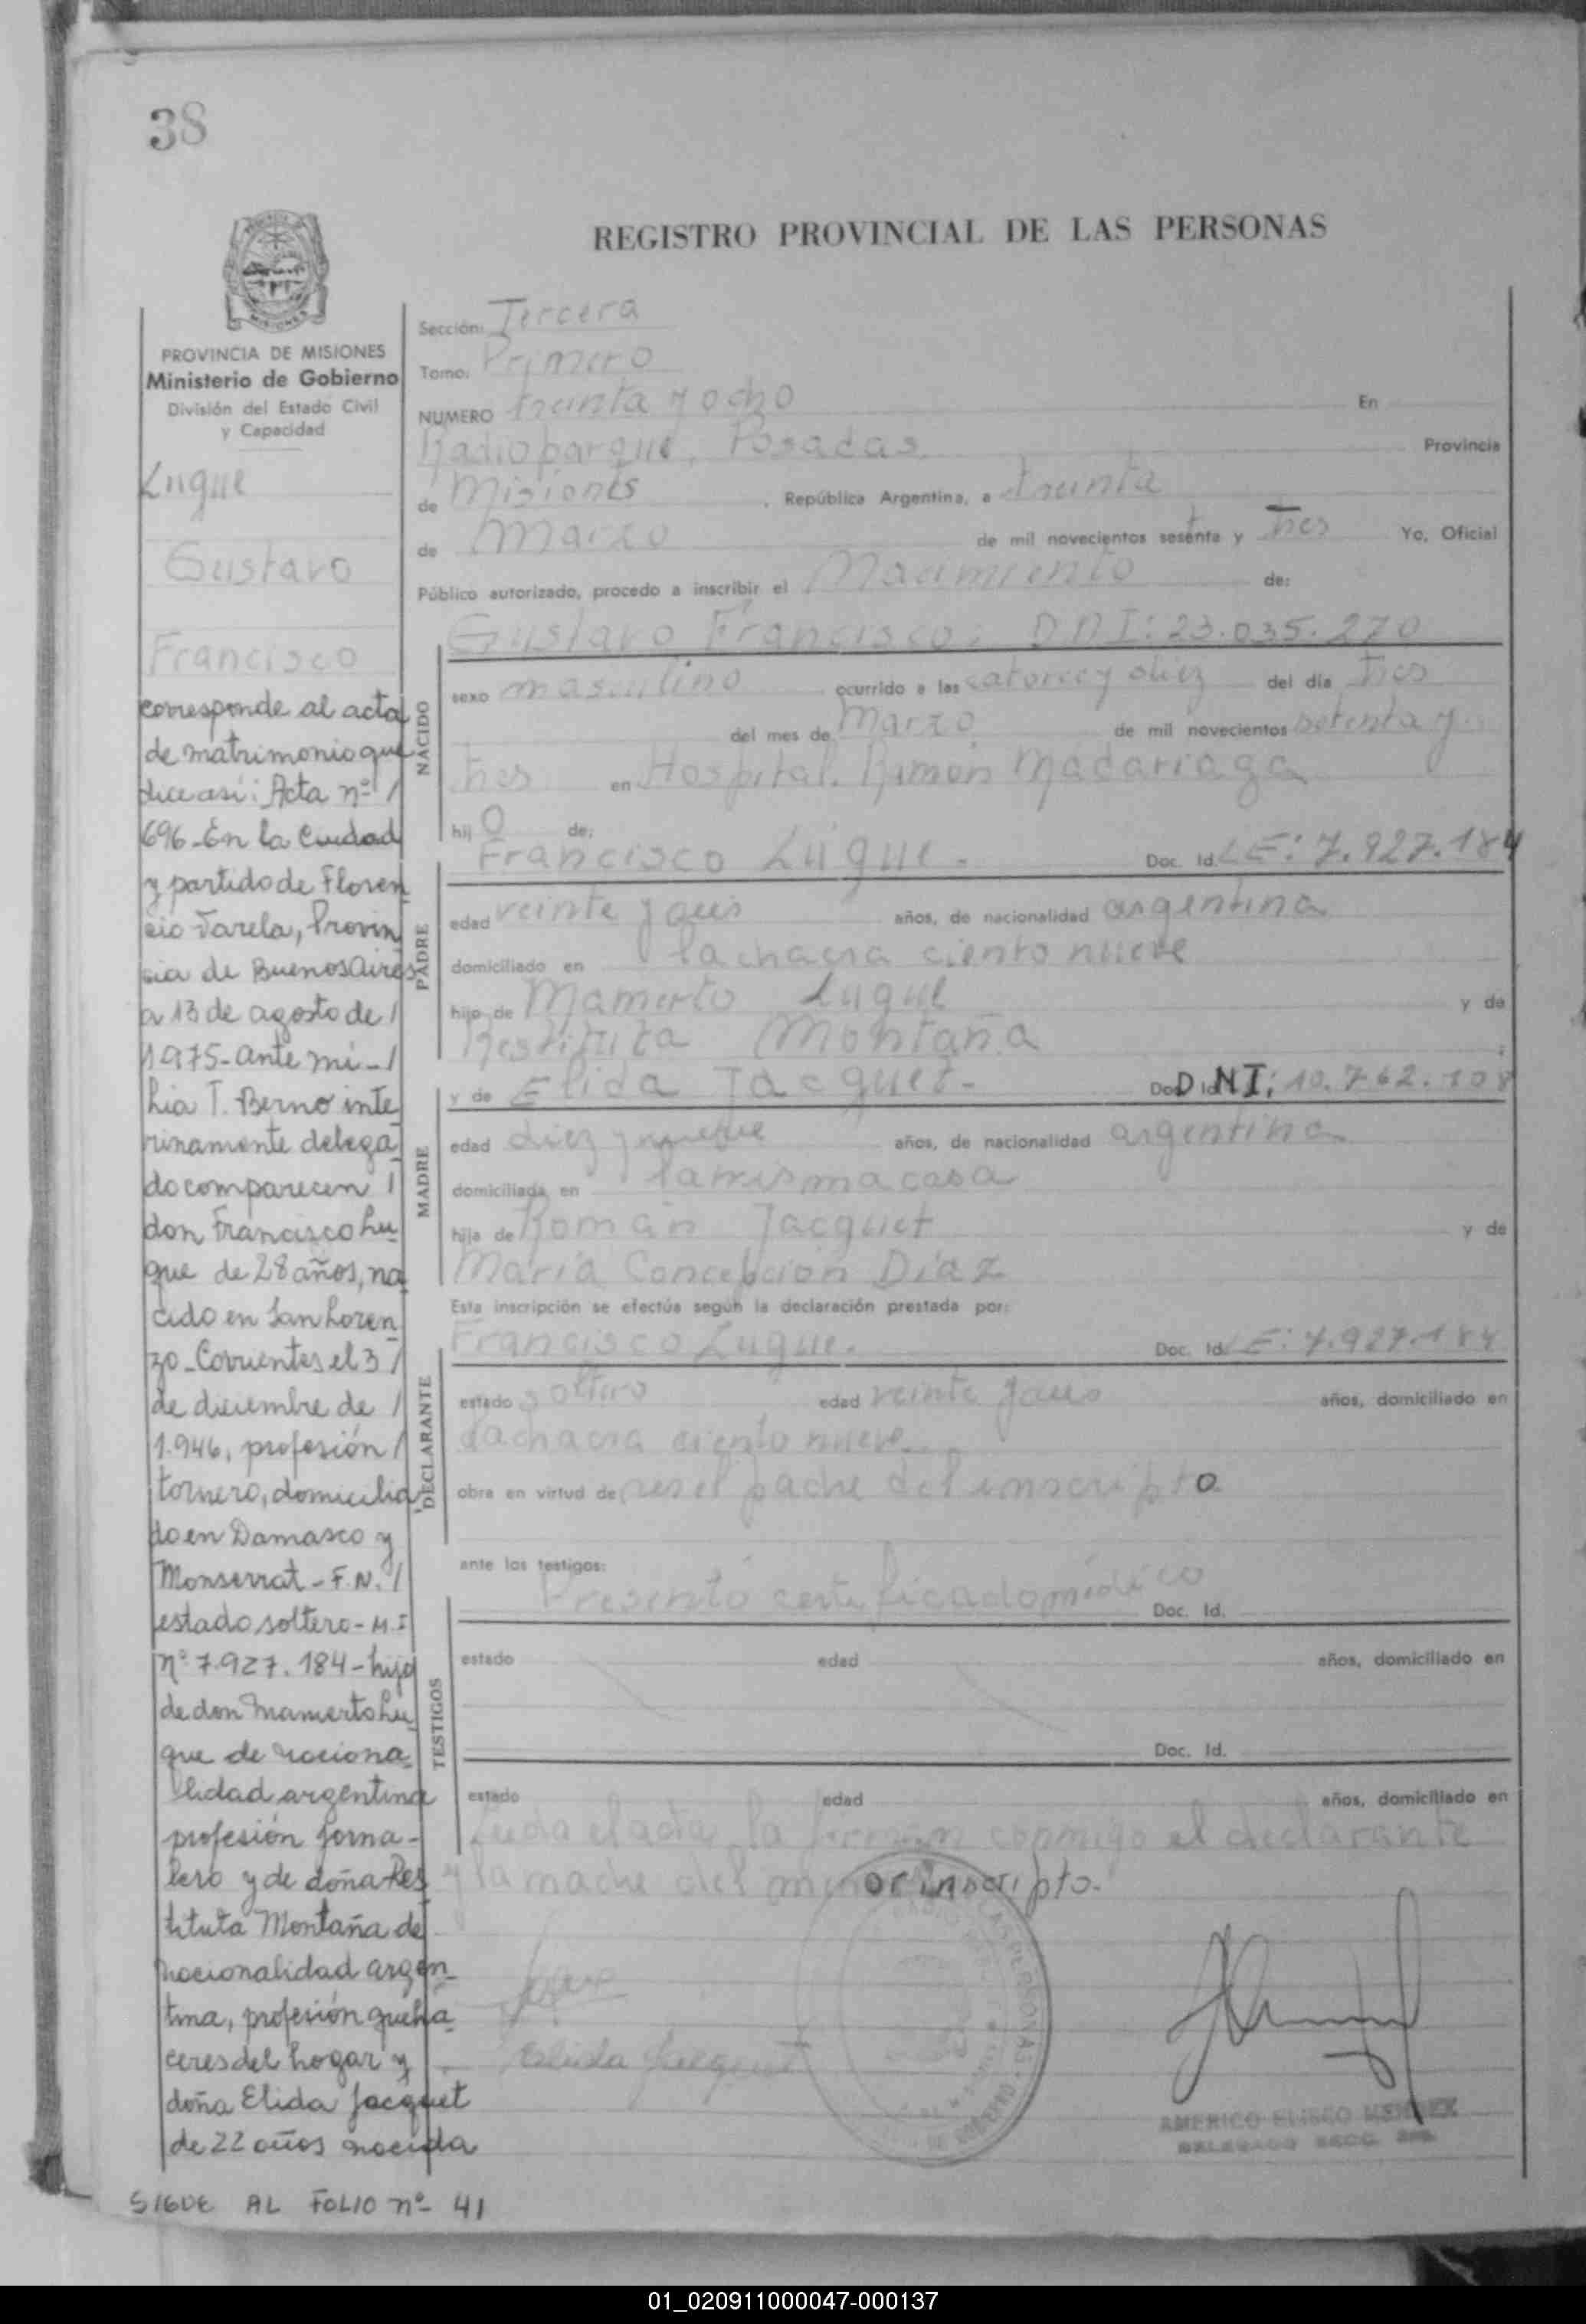 38
REGISTRO PROVINCIAL DE LAS PERSONAS
PROVINCIA DE MISIONES
Ministerio de Gobierno
División del Estado Civil
y Capacidad
Luque
Gustavo
Francisco
corresponde al acta
de matrimonio que
dice así: Acta nº /
696 - En la Ciudad
y partido de Floren
cio Varela, Provin
cia de Buenos Aires
a 13 de agosto de /
1975 - ante mí - /
Lia T. Berno inte
rinamente delega
do comparecen /
don Francisco Lu
que de 28 años, na
cido en San Loren
zo - Corrientes el 3 /
de diciembre de /
1.946, profesión /
tornero, domicilia
do en Damasco y
Monserrat - F.N. /
estado soltero - M.I
nº 7.927.184 - hijo
de don Mamerto Lu
que de naciona
lidad argentina
profesión jorna-
lero y de doña Res
tituta Montaña de
nacionalidad argen
tina, profesión queha
ceres del hogar y
doña Elida Jacquet
de 22 años nacida
SIGUE AL FOLIO nº 41
Sección: Tercera
Tomo. Primero
NUMERO treinta y ocho En
Radioparque, Posadas Provincia
de Misiones, República Argentina, a treinta
de Marzo de mil novecientos sesenta y Tres Yo, Oficial
Público autorizado, procedo a inscribir el Nacimiento de:
Gustavo Francisco. D.N.I: 23.035.270
NACIDO
sexo masculino ocurrido a las catorce y diez del día tres
del mes de Marzo de mil novecientos setenta y
tres en Hospital. Ramón Madariaga
hijo de:
Francisco Luque. Doc. Id. LE: 7.927.184
PADRE
edad veinte y seis años, de nacionalidad argentina
domiciliado en la chacra ciento nueve
hijo de Mamerto Luque y de
Restituta Montaña
y de Elida Jacquet. Doc. Id. DNI: 10.762.108
MADRE
edad diez y nueve años, de nacionalidad argentina
domiciliada en la misma casa
hija de Román Jacquet y de
María Concepción Díaz
Esta inscripción se efectúa según la declaración prestada por:
Francisco Luque. Doc. Id. LE: 7.927.184
DECLARANTE
estado soltero edad veinte y seis años, domiciliado en
la chacra ciento nueve
obra en virtud de ser el padre del inscripto
ante los testigos:
Presentó certificado médico Doc. Id.
TESTIGOS
estado edad años, domiciliado en
Doc. Id.
estado edad años, domiciliado en
Leída el acta, la firman conmigo el declarante
y la madre del menor inscripto.
Elida Jacquet
AMERICO ELISEO
DELEGADO SECC.
01_020911000047-000137